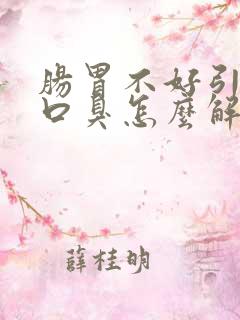 腸胃不好引
口臭怎麼解
薛桂明